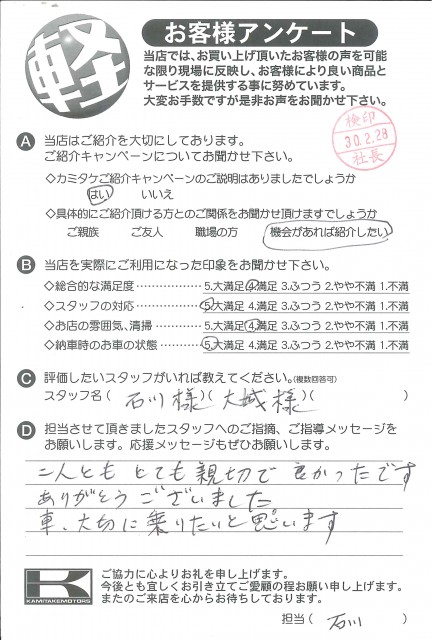 軽
お客様アンケート
当店では、お買い上げ頂いたお客様の声を可能
な限り現場に反映し、お客様により良い商品と
サービスを提供する事に努めています。
大変お手数ですが是非お声をお聞かせ下さい。
検印
30.2.28
社長
A 当店はご紹介を大切にしております。
ご紹介キャンペーンについてお聞かせ下さい。
◇カミタケご紹介キャンペーンのご説明はありましたでしょうか
はい いいえ
◇具体的にご紹介頂ける方とのご関係をお聞かせ頂けますでしょうか
ご親族 ご友人 職場の方 機会があれば紹介したい
B 当店を実際にご利用になった印象をお聞かせ下さい。
◇総合的な満足度 ⋯⋯⋯⋯⋯ 5.大満足 4.満足 3.ふつう 2.やや不満 1.不満
◇スタッフの対応 ⋯⋯⋯⋯⋯ 5.大満足 4.満足 3.ふつう 2.やや不満 1.不満
◇お店の雰囲気、清掃 ⋯⋯⋯ 5.大満足 4.満足 3.ふつう 2.やや不満 1.不満
◇納車時のお車の状態 ⋯⋯⋯ 5.大満足 4.満足 3.ふつう 2.やや不満 1.不満
C 評価したいスタッフがいれば教えてください。(複数回答可)
スタッフ名 ( 石川様 )( 大城様 )( )
D 担当させて頂きましたスタッフへのご指摘、ご指導メッセージを
お願いします。応援メッセージもぜひお願いします。
二人とも とても 親切で 良かったです
ありがとう ございました
車、大切に乗りたいと思います
K
KAMITAKEMOTORS
ご協力に心よりお礼を申し上げます。
今後とも宜しくお引き立てご愛顧の程お願い申し上げます。
またのご来店を心からお待ちしております。
担当 ( 石川 )